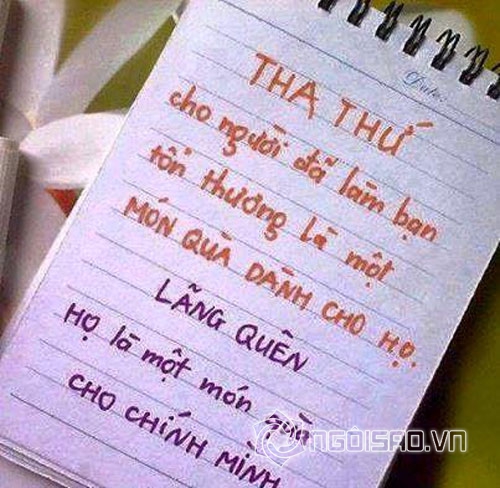 Date:
THA THỨ
cho người đã làm bạn
tổn thương là một
MÓN QUÀ DÀNH CHO HỌ.
LÃNG QUÊN
HỌ là một món quà
CHO CHÍNH MÌNH
NGÔISAO.VN